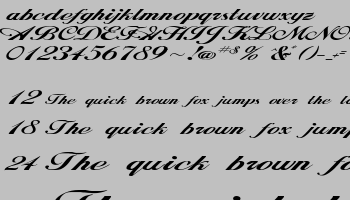 abcdefghijklmnopqrstuvwxyz
ABCDEFGHIJKLMNO
0123456789~!@#$%^&*()-_+=
12 The quick brown fox jumps over the
18 The quick brown fox jump
24 The quick brown